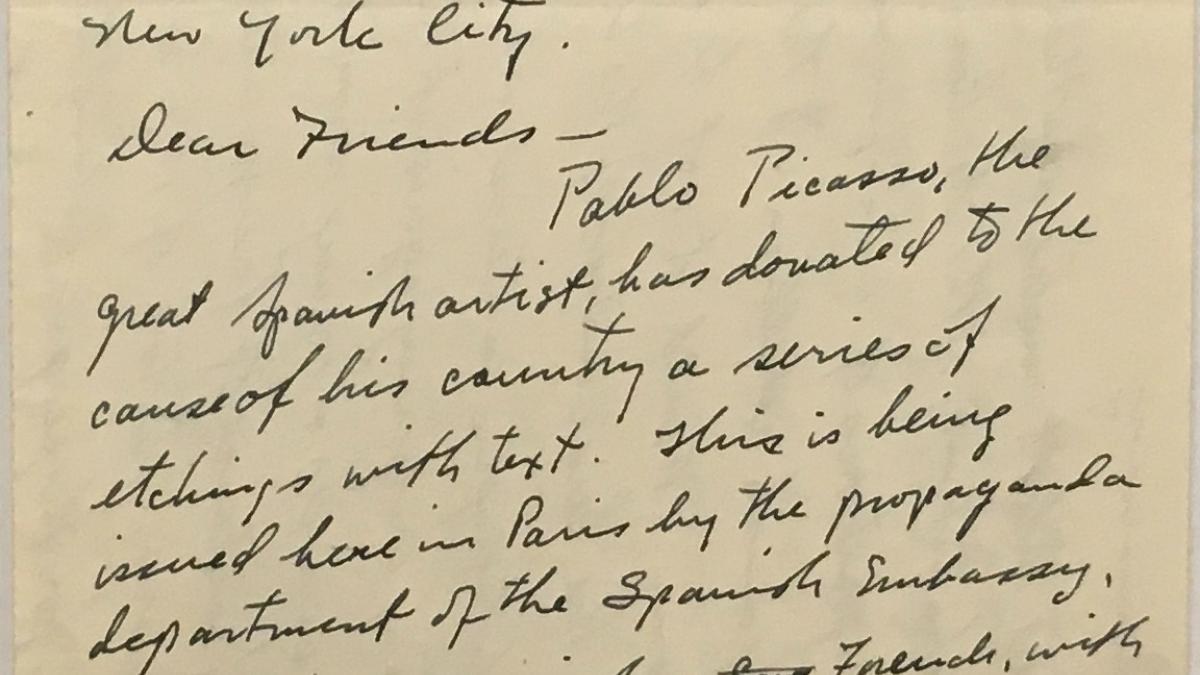 New York City.
Dear Friends —
Pablo Picasso, the
great Spanish artist, has donated to the
cause of his country a series of
etchings with text. This is being
issued here in Paris by the propaganda
department of the Spanish Embassy,
French, with